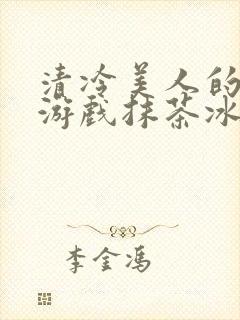 清冷美人的
游戏抹茶冰
李金冯